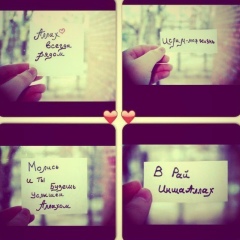 Аллах
всегда
рядом
Ислам-моя жизнь
Молись
и ты
будешь
услышан
Аллахом
В Рай
ИншаАллах